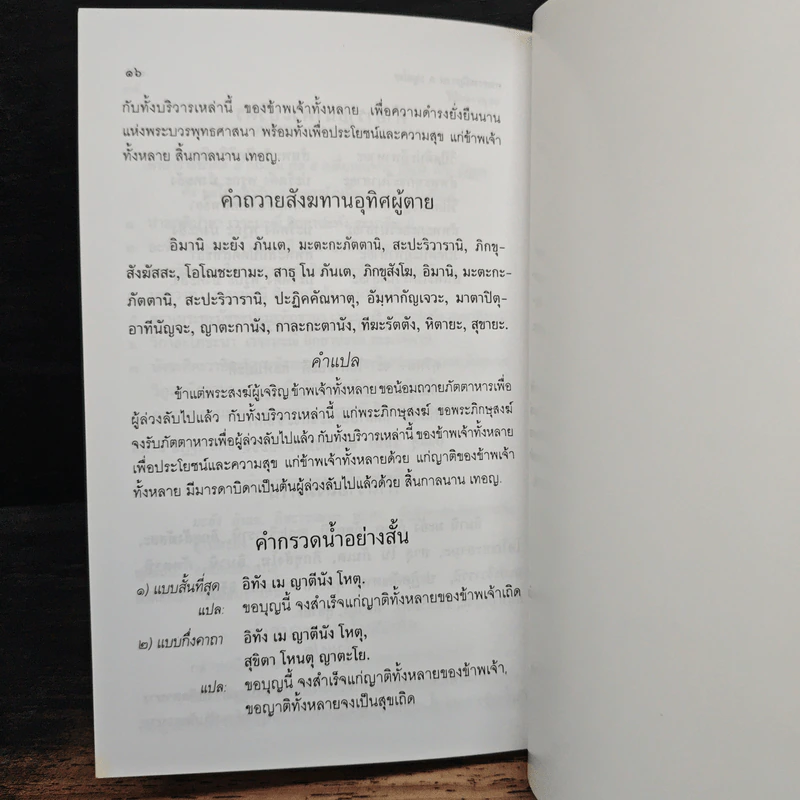 ๑๖
กับทั้งบริวารเหล่านี้ ของข้าพเจ้าทั้งหลาย เพื่อความดำรงยั่งยืนนาน
แห่งพระบวรพุทธศาสนา พร้อมทั้งเพื่อประโยชน์และความสุข แก่ข้าพเจ้า
ทั้งหลาย สิ้นกาลนาน เทอญ.
คำถวายสังฆทานอุทิศผู้ตาย
อิมานิ มะยัง ภันเต, มะตะกะภัตตานิ, สะปะริวารานิ, ภิกขุ-
สังฆัสสะ, โอโณชะยามะ, สาธุ โน ภันเต, ภิกขุสังโฆ, อิมานิ, มะตะกะ-
ภัตตานิ, สะปะริวารานิ, ปะฏิคคัณหาตุ, อัมฺหากัญเจวะ, มาตาปิตุ-
อาทีนัญจะ, ญาตะกานัง, กาละกะตานัง, ทีฆะรัตตัง, หิตายะ, สุขายะ.
คำแปล
ข้าแต่พระสงฆ์ผู้เจริญ ข้าพเจ้าทั้งหลาย ขอน้อมถวายภัตตาหารเพื่อ
ผู้ล่วงลับไปแล้ว กับทั้งบริวารเหล่านี้ แก่พระภิกษุสงฆ์ ขอพระภิกษุสงฆ์
จงรับภัตตาหารเพื่อผู้ล่วงลับไปแล้ว กับทั้งบริวารเหล่านี้ ของข้าพเจ้าทั้งหลาย
เพื่อประโยชน์และความสุข แก่ข้าพเจ้าทั้งหลายด้วย แก่ญาติของข้าพเจ้า
ทั้งหลาย มีมารดาบิดาเป็นต้นผู้ล่วงลับไปแล้วด้วย สิ้นกาลนาน เทอญ.
คำกรวดน้ำอย่างสั้น
๑) แบบสั้นที่สุด อิทัง เม ญาตีนัง โหตุ.
แปล: ขอบุญนี้ จงสำเร็จแก่ญาติทั้งหลายของข้าพเจ้าเถิด
๒) แบบกึ่งคาถา อิทัง เม ญาตีนัง โหตุ,
สุขิตา โหนตุ ญาตะโย.
แปล: ขอบุญนี้ จงสำเร็จแก่ญาติทั้งหลายของข้าพเจ้า,
ขอญาติทั้งหลายจงเป็นสุขเถิด